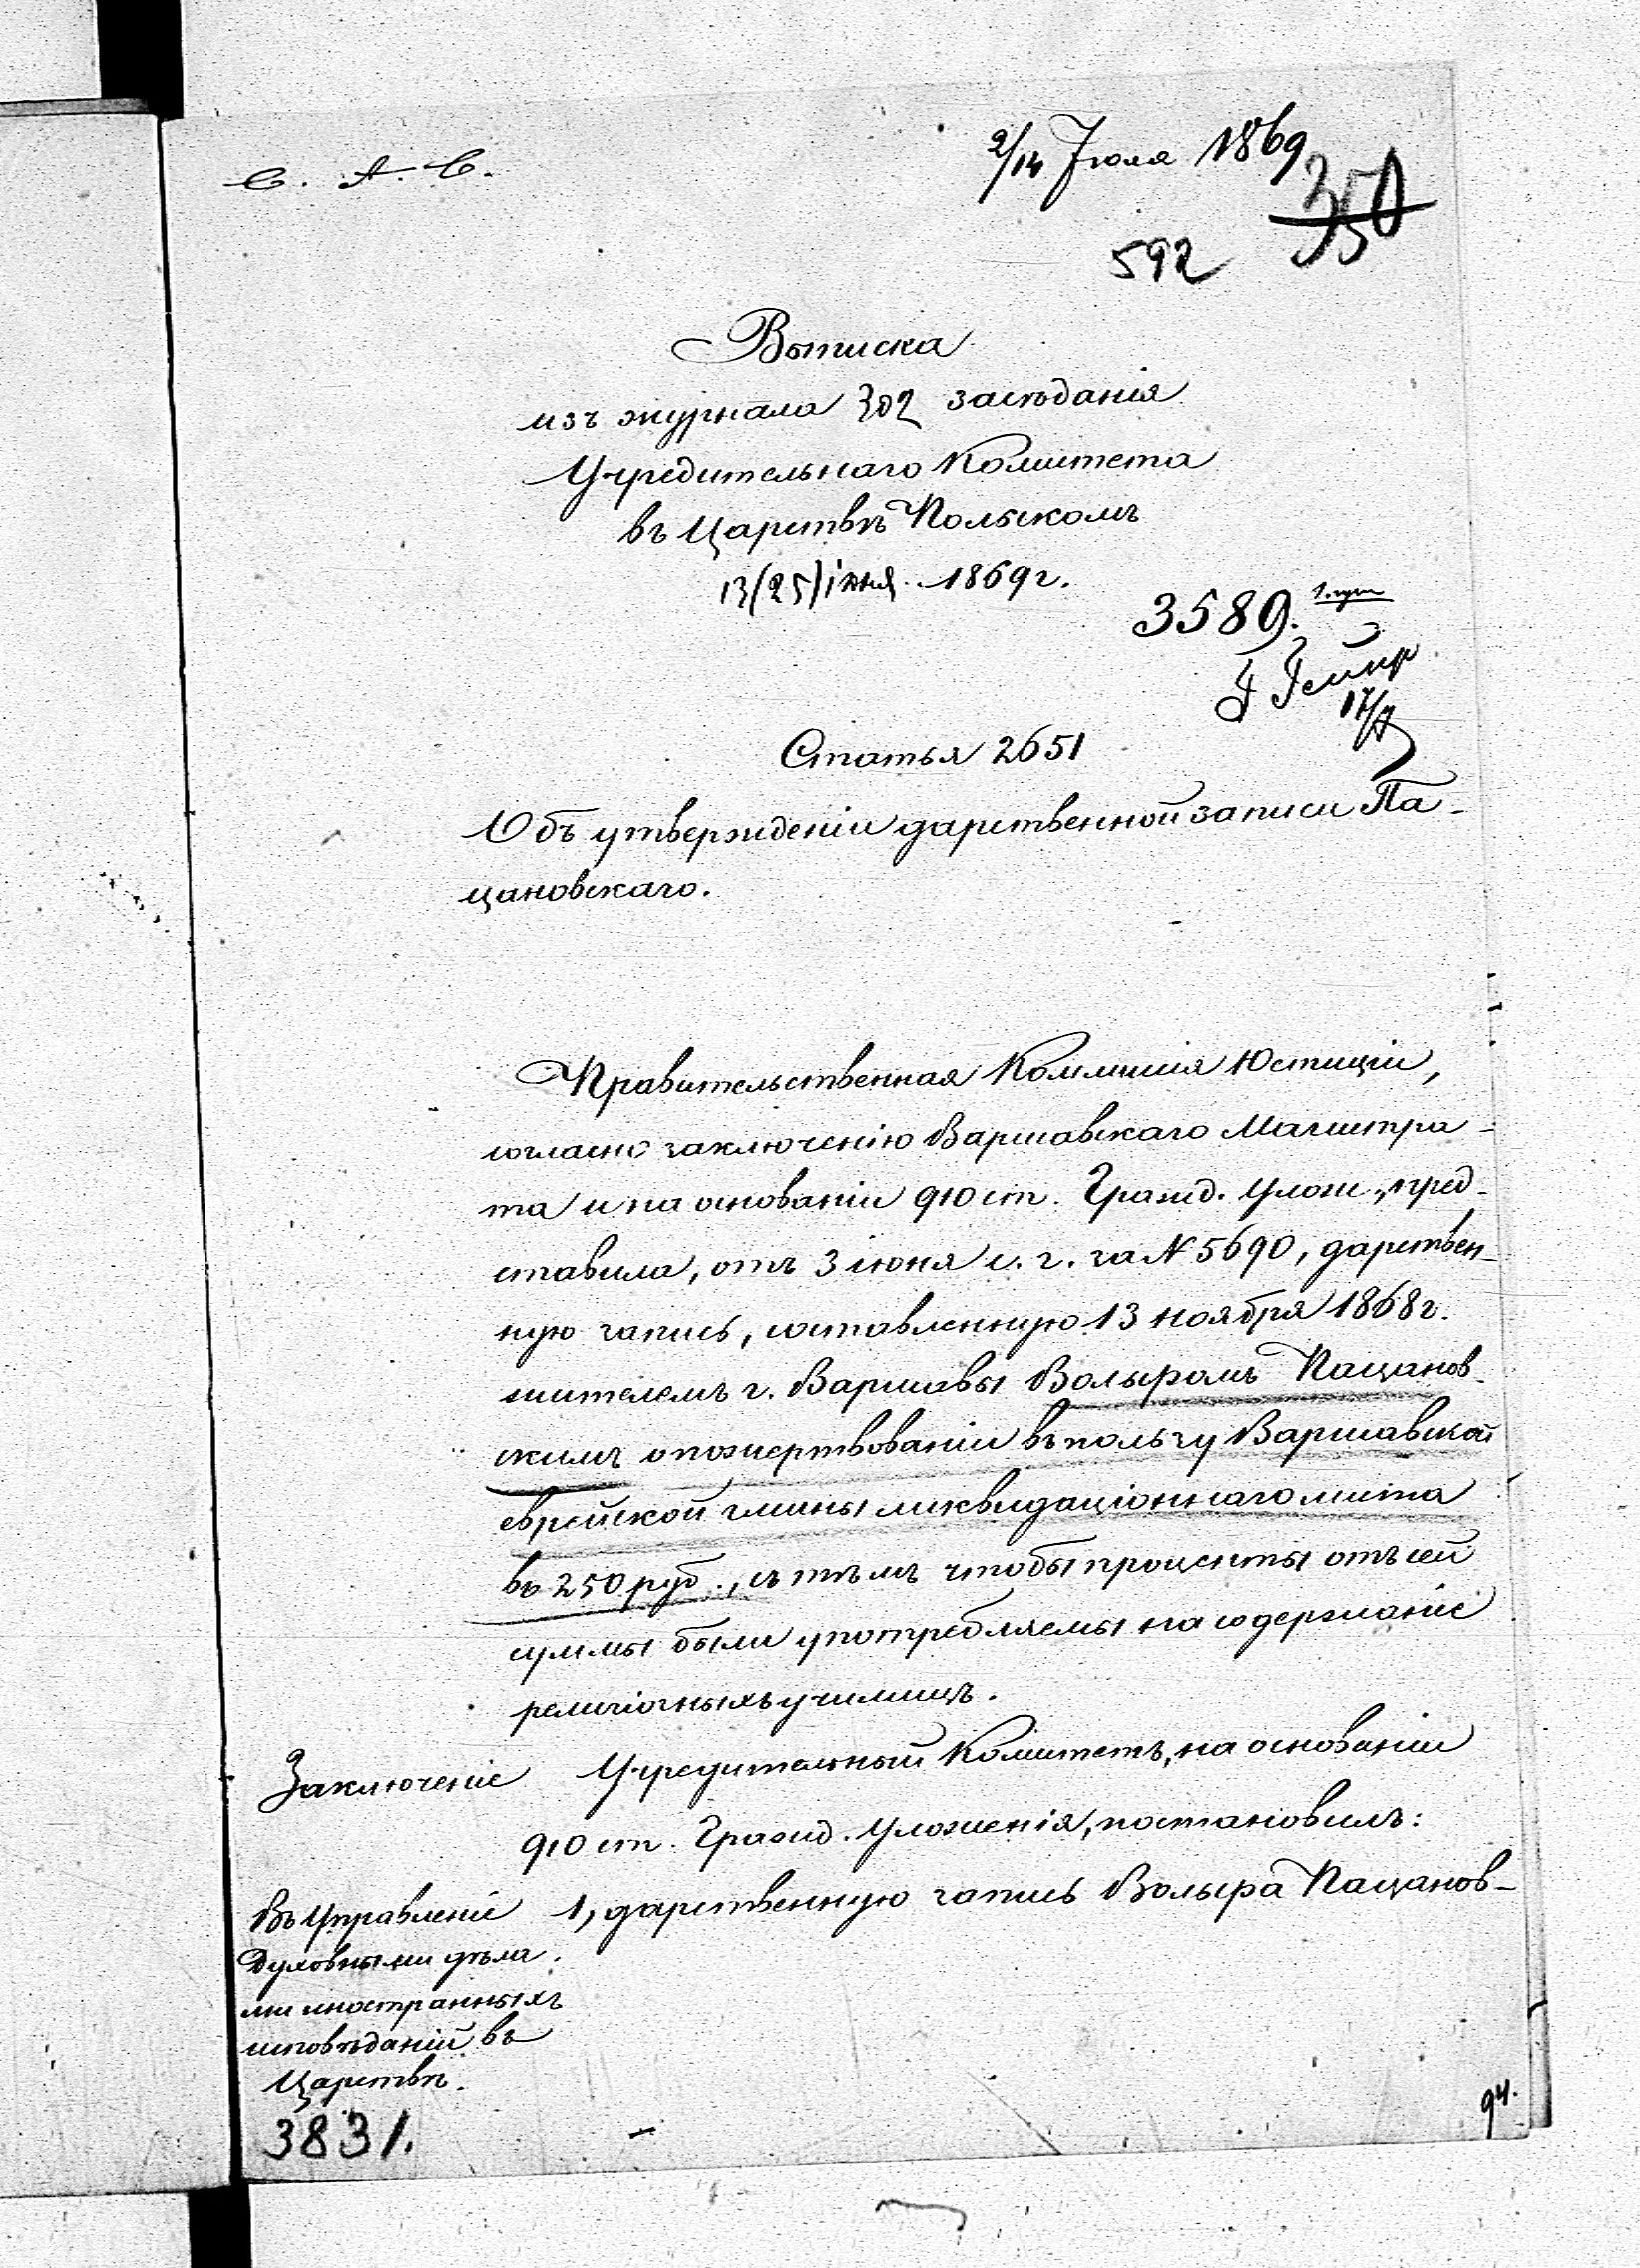 С. А. С.
2/14 Іюля 1869
350
592
Выписка
изъ журнала 302 засѣданія
Учредительнаго Комитета
въ Царствѣ Польскомъ
13/25 іюня 1869 г.
3589.
17/7
Статья 2651
Объ утвержденіи дарственной записи Па-
цановскаго.
Правительственная Коммисія Юстиціи,
согласно заключенію Варшавскаго Магистра-
та и на основаніи 910 ст. Гражд. Улож., пред-
ставила, отъ 3 іюня с. г. за № 5690, дарствен-
ную запись, составленную 13 ноября 1868 г.
жителемъ г. Варшавы Вольфомъ Пацанов-
скимъ о пожертвованіи въ пользу Варшавской
еврейской гмины ликвидаціоннаго листа
въ 250 руб., съ тѣмъ чтобы проценты отъ сей
суммы были употребляемы на содержаніе
религіозныхъ училищъ.
Заключеніе Учредительный Комитетъ, на основаніи
910 ст. Гражд. Уложенія, постановилъ:
1, дарственную запись Вольфа Пацанов-
Въ Управленіе
Духовными дѣла-
ми иностранныхъ
исповѣданій въ
Царствѣ.
3831.
94.